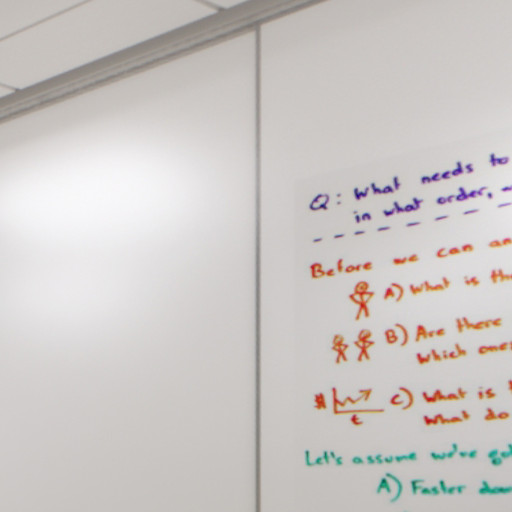 Q: What needs to
in what order,
Before we can an
A) What is th
B) Are there
which ones
$ C) What is
t What do
Let's assume we've go
A) Faster dow